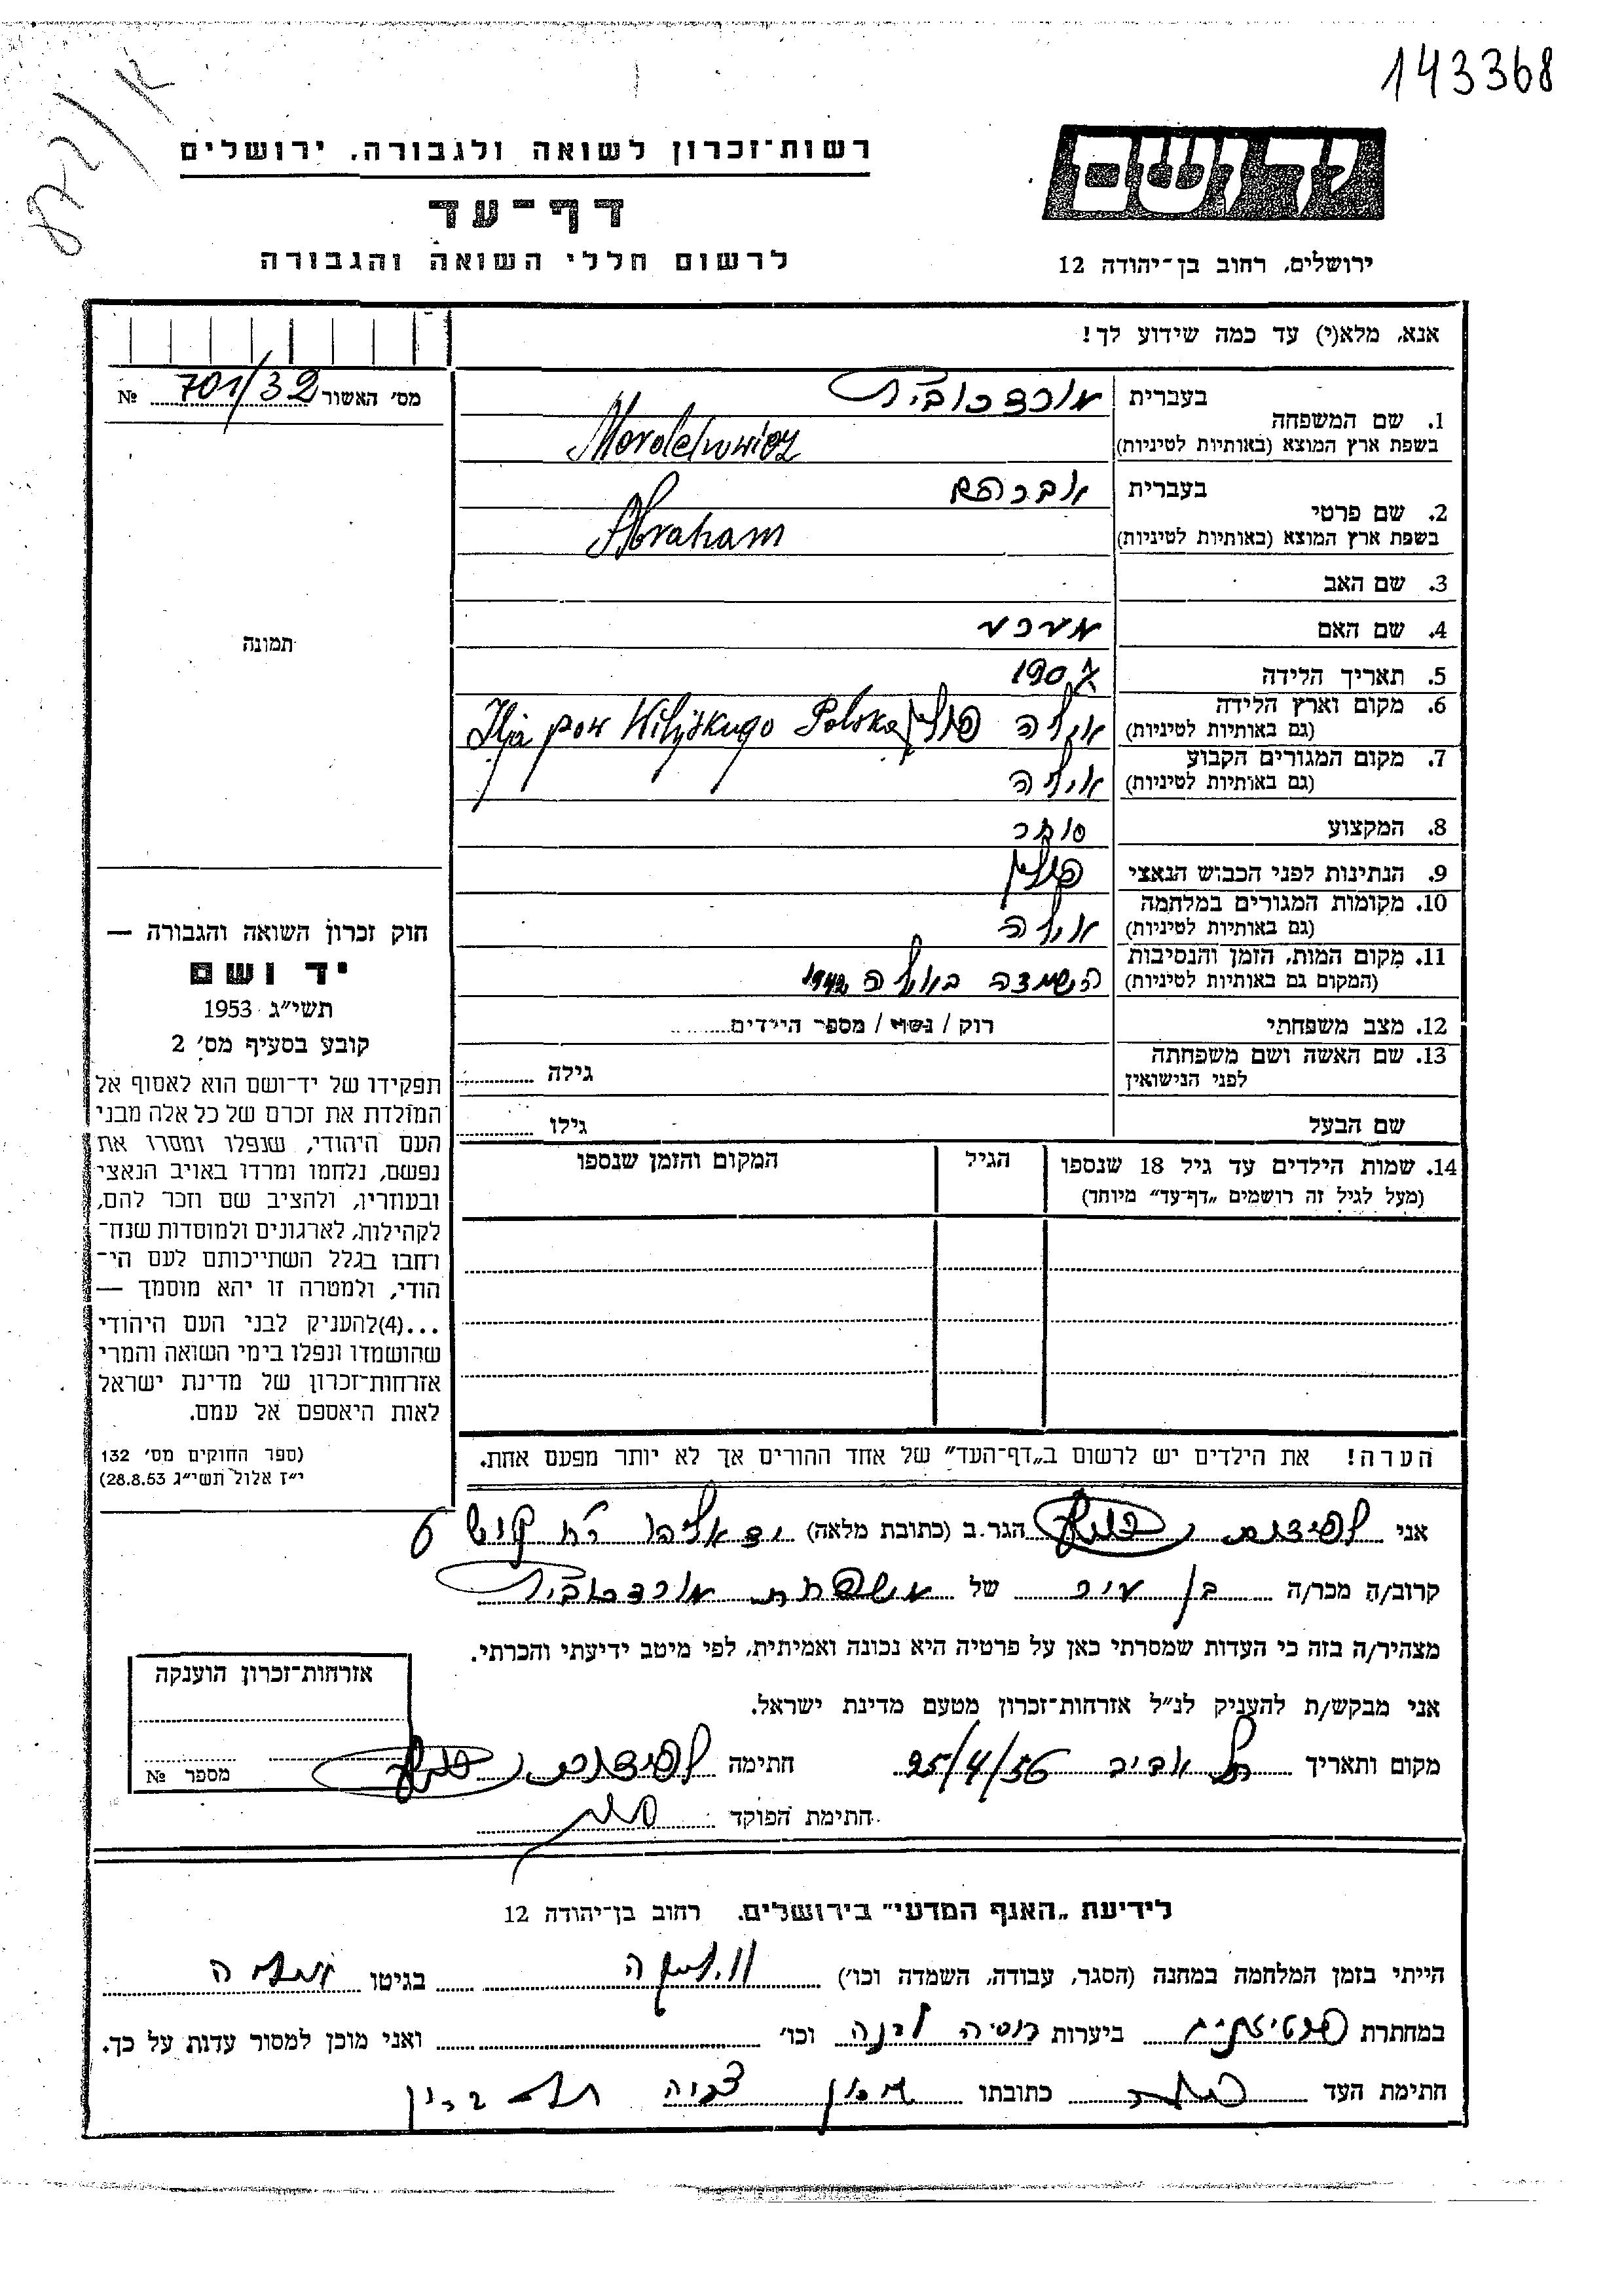 143368
872/א
רשות־זכרון לשואה ולגבורה. ירושלים
דף־עד
לרשום חללי השואה והגבורה
יד ושם
ירושלים, רחוב בן־יהודה 12
אנא, מלא(י) עד כמה שידוע לך!
מס׳ האשור 701/32 №
תמונה
1. שם המשפחה
בעברית מורדכוביץ
בשפת ארץ המוצא (באותיות לטיניות) Mordchowicz
2. שם פרטי
בעברית אברהם
בשפת ארץ המוצא (באותיות לטיניות) Abraham
3. שם האב
4. שם האם
5. תאריך הלידה 1907
6. מקום וארץ הלידה
(גם באותיות לטיניות) איליה פולין Ilja pow Polska
7. מקום המגורים הקבוע
(גם באותיות לטיניות) איליה
8. המקצוע סוחר
9. הנתינות לפני הכבוש הנאצי פולין
10. מקומות המגורים במלחמה
(גם באותיות לטיניות) איליה
11. מקום המות, הזמן והנסיבות
(המקום גם באותיות לטיניות) השמדה באיליה 1942
12. מצב משפחתי רוק / נשוי / מספר הילדים
13. שם האשה ושם משפחתה
לפני הנישואין גילה
שם הבעל גילו
14. שמות הילדים עד גיל 18 שנספו הגיל המקום והזמן שנספו
(מעל לגיל זה רושמים „דף־עד״ מיוחד)
הערה! את הילדים יש לרשום ב„דף־העד״ של אחד ההורים אך לא יותר מפעם אחת.
חוק זכרון השואה והגבורה —
יד ושם
תשי״ג 1953
קובע בסעיף מס׳ 2
תפקידו של יד־ושם הוא לאסוף אל
המולדת את זכרם של כל אלה מבני
העם היהודי, שנפלו ומסרו את
נפשם, נלחמו ומרדו באויב הנאצי
ובעוזריו, ולהציב שם וזכר להם,
לקהילות, לארגונים ולמוסדות שנח־
רחבו בגלל השתייכותם לעם הי־
הודי, ולמטרה זו יהא מוסמך —
...(4)להעניק לבני העם היהודי
שהושמדו ונפלו בימי השואה והמרי
אזרחות־זכרון של מדינת ישראל
לאות היאספם אל עמם.
(ספר החוקים מס׳ 132
י״ז אלול תשי״ג 28.8.53)
אני הגר.ב (כתובת מלאה) יד אליהו רח׳ 6
קרוב/ה מכר/ה בן עיר של משפחת מורדכוביץ
מצהיר/ה בזה כי העדות שמסרתי כאן על פרטיה היא נכונה ואמיתית, לפי מיטב ידיעתי והכרתי.
אני מבקש/ת להעניק לנ״ל אזרחות־זכרון מטעם מדינת ישראל.
מקום ותאריך תל אביב 25/4/56 חתימה
חתימת הפוקד
אזרחות־זכרון הוענקה
מספר №
לידיעת „האגף המדעי״ בירושלים. רחוב בן־יהודה 12
הייתי בזמן המלחמה במחנה (הסגר, עבודה, השמדה וכו׳) בגיטו
במחתרת פרטיזנים ביערות רוסיה לבנה וכו׳ ואני מוכן למסור עדות על כך.
חתימת העד כתובתו